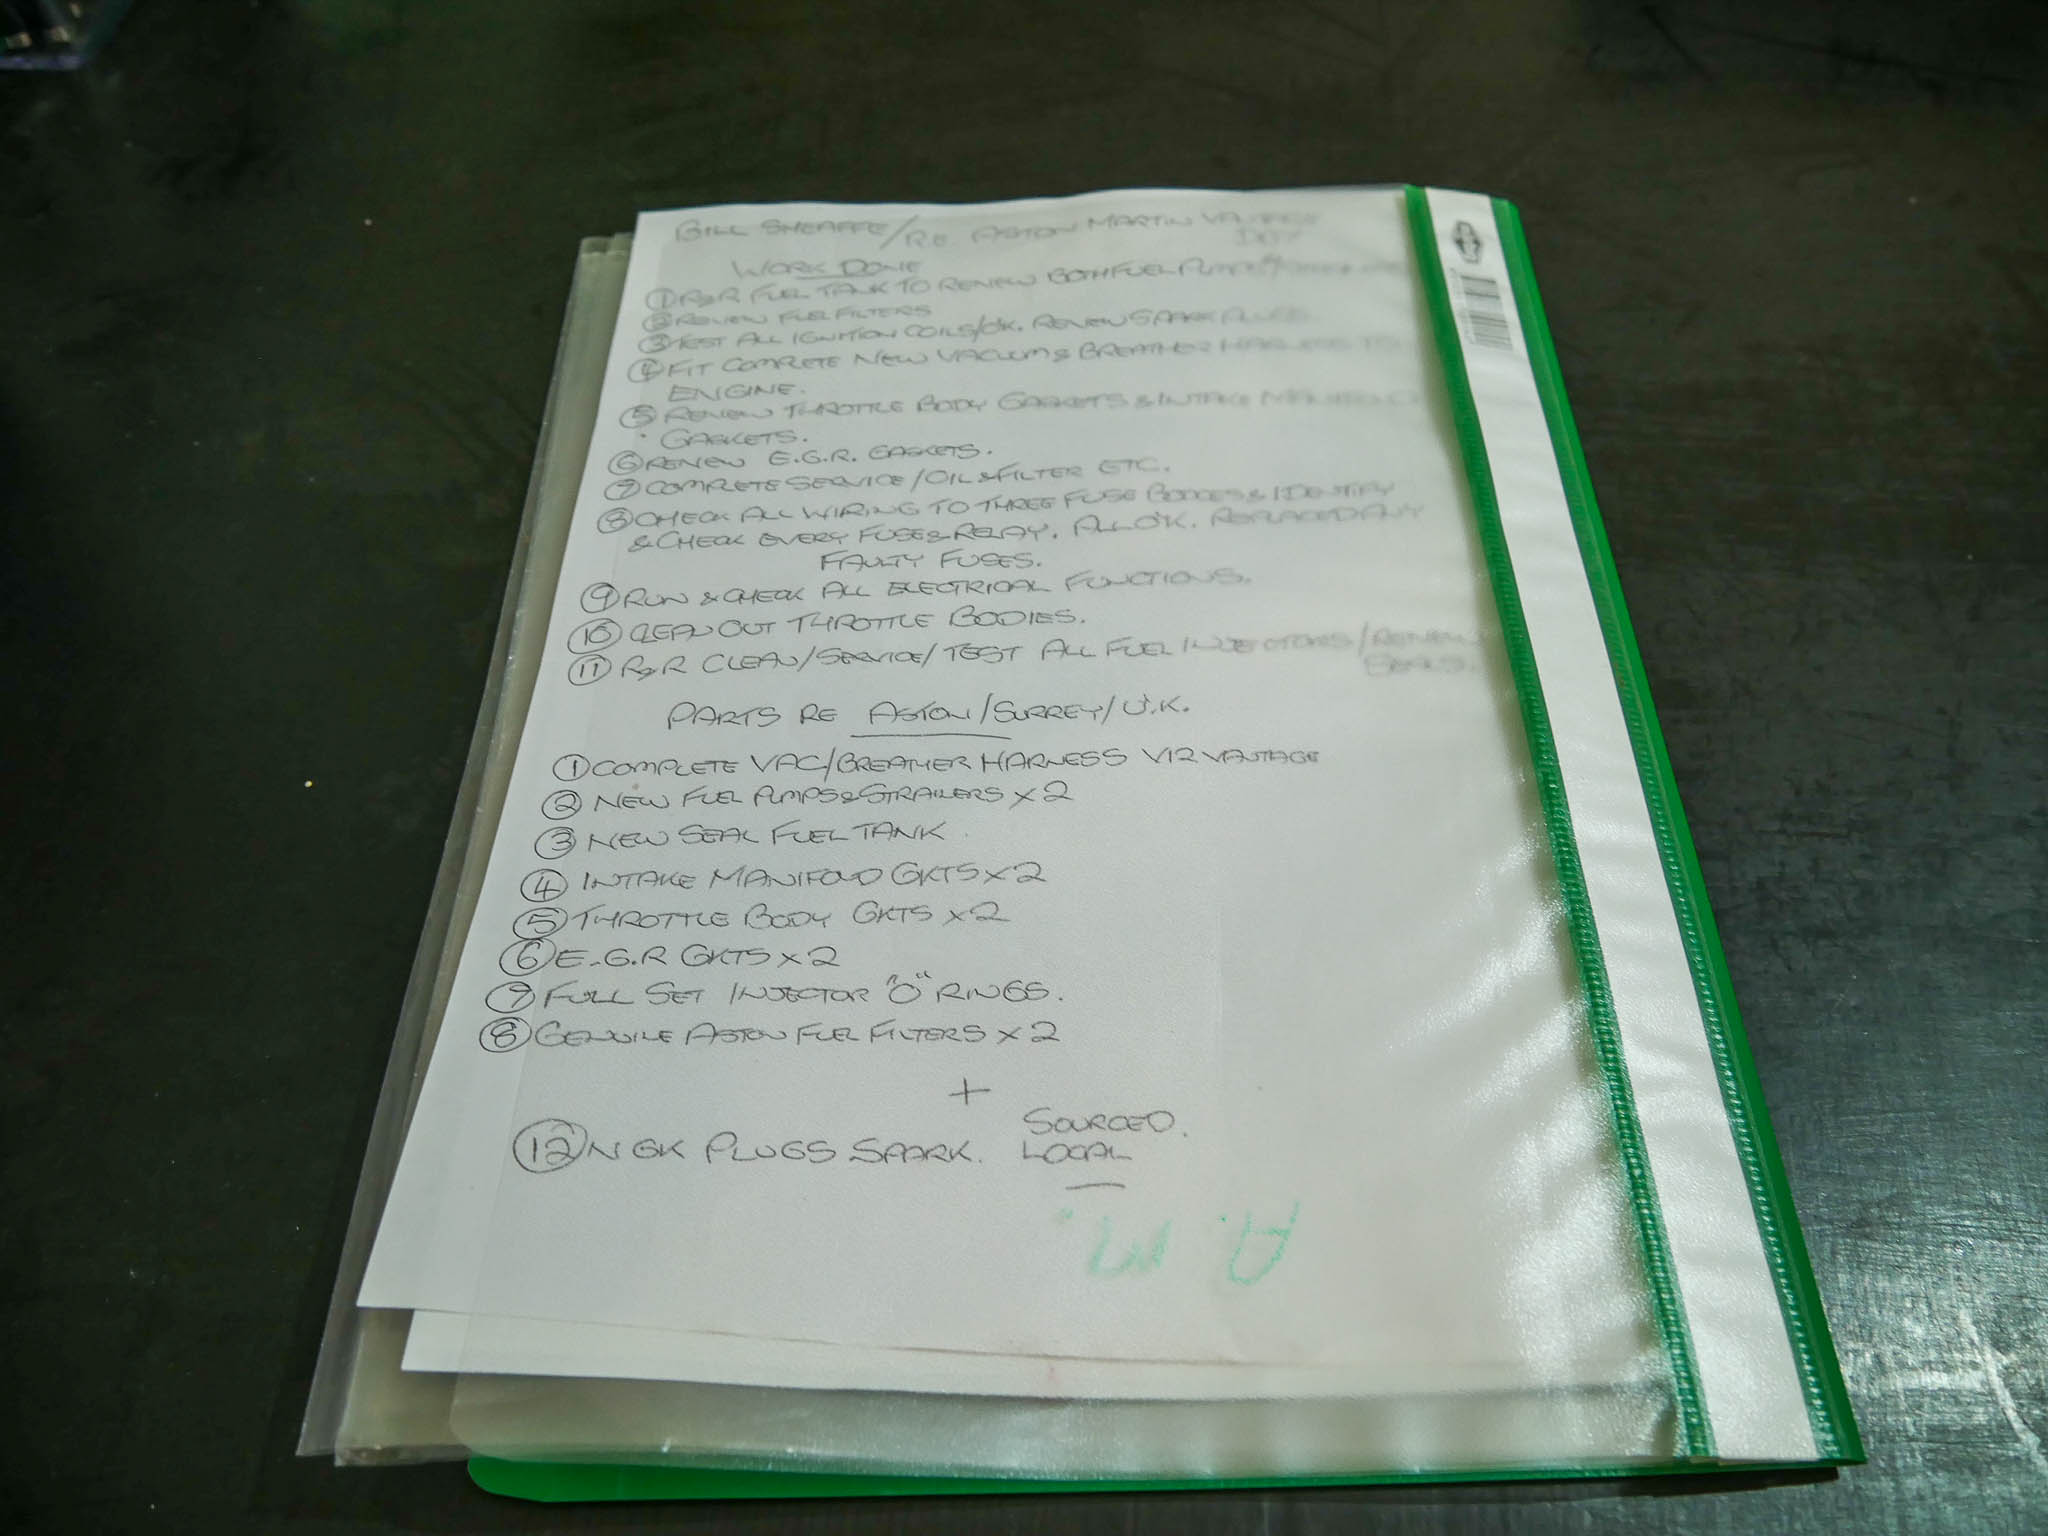 BILL SHEAFFE/RE. ASTON MARTIN VANTAGE
DB7
WORK DONE
① R&R FUEL TANK TO RENEW BOTH FUEL PUMPS
② RENEW FUEL FILTERS
③ TEST ALL IGNITION COILS/OK. RENEW SPARK PLUGS
④ FIT COMPLETE NEW VACUUM & BREATHER HARNESS TO
ENGINE.
⑤ RENEW THROTTLE BODY GASKETS & INTAKE MANIFOLD
GASKETS.
⑥ RENEW E.G.R. GASKETS.
⑦ COMPLETE SERVICE/OIL & FILTER ETC.
⑧ CHECK ALL WIRING TO THREE FUSE BOXES & IDENTIFY
& CHECK EVERY FUSE & RELAY. ALL O'K. REPLACED ANY
FAULTY FUSES.
⑨ RUN & CHECK ALL ELECTRICAL FUNCTIONS.
⑩ CLEAN OUT THROTTLE BODIES.
⑪ R&R CLEAN/SERVICE/TEST ALL FUEL INJECTORS/RENEW
SEALS.
PARTS RE ASTON/SURREY/U.K.
① COMPLETE VAC/BREATHER HARNESS V12 VANTAGE
② NEW FUEL PUMPS & STRAINERS x 2
③ NEW SEAL FUEL TANK
④ INTAKE MANIFOLD GKTS x 2
⑤ THROTTLE BODY GKTS x 2
⑥ E.G.R GKTS x 2
⑦ FULL SET INJECTOR "O" RINGS.
⑧ GENUINE ASTON FUEL FILTERS x 2
+
⑫ NGK PLUGS SPARK. SOURCED.
LOCAL
A.M.